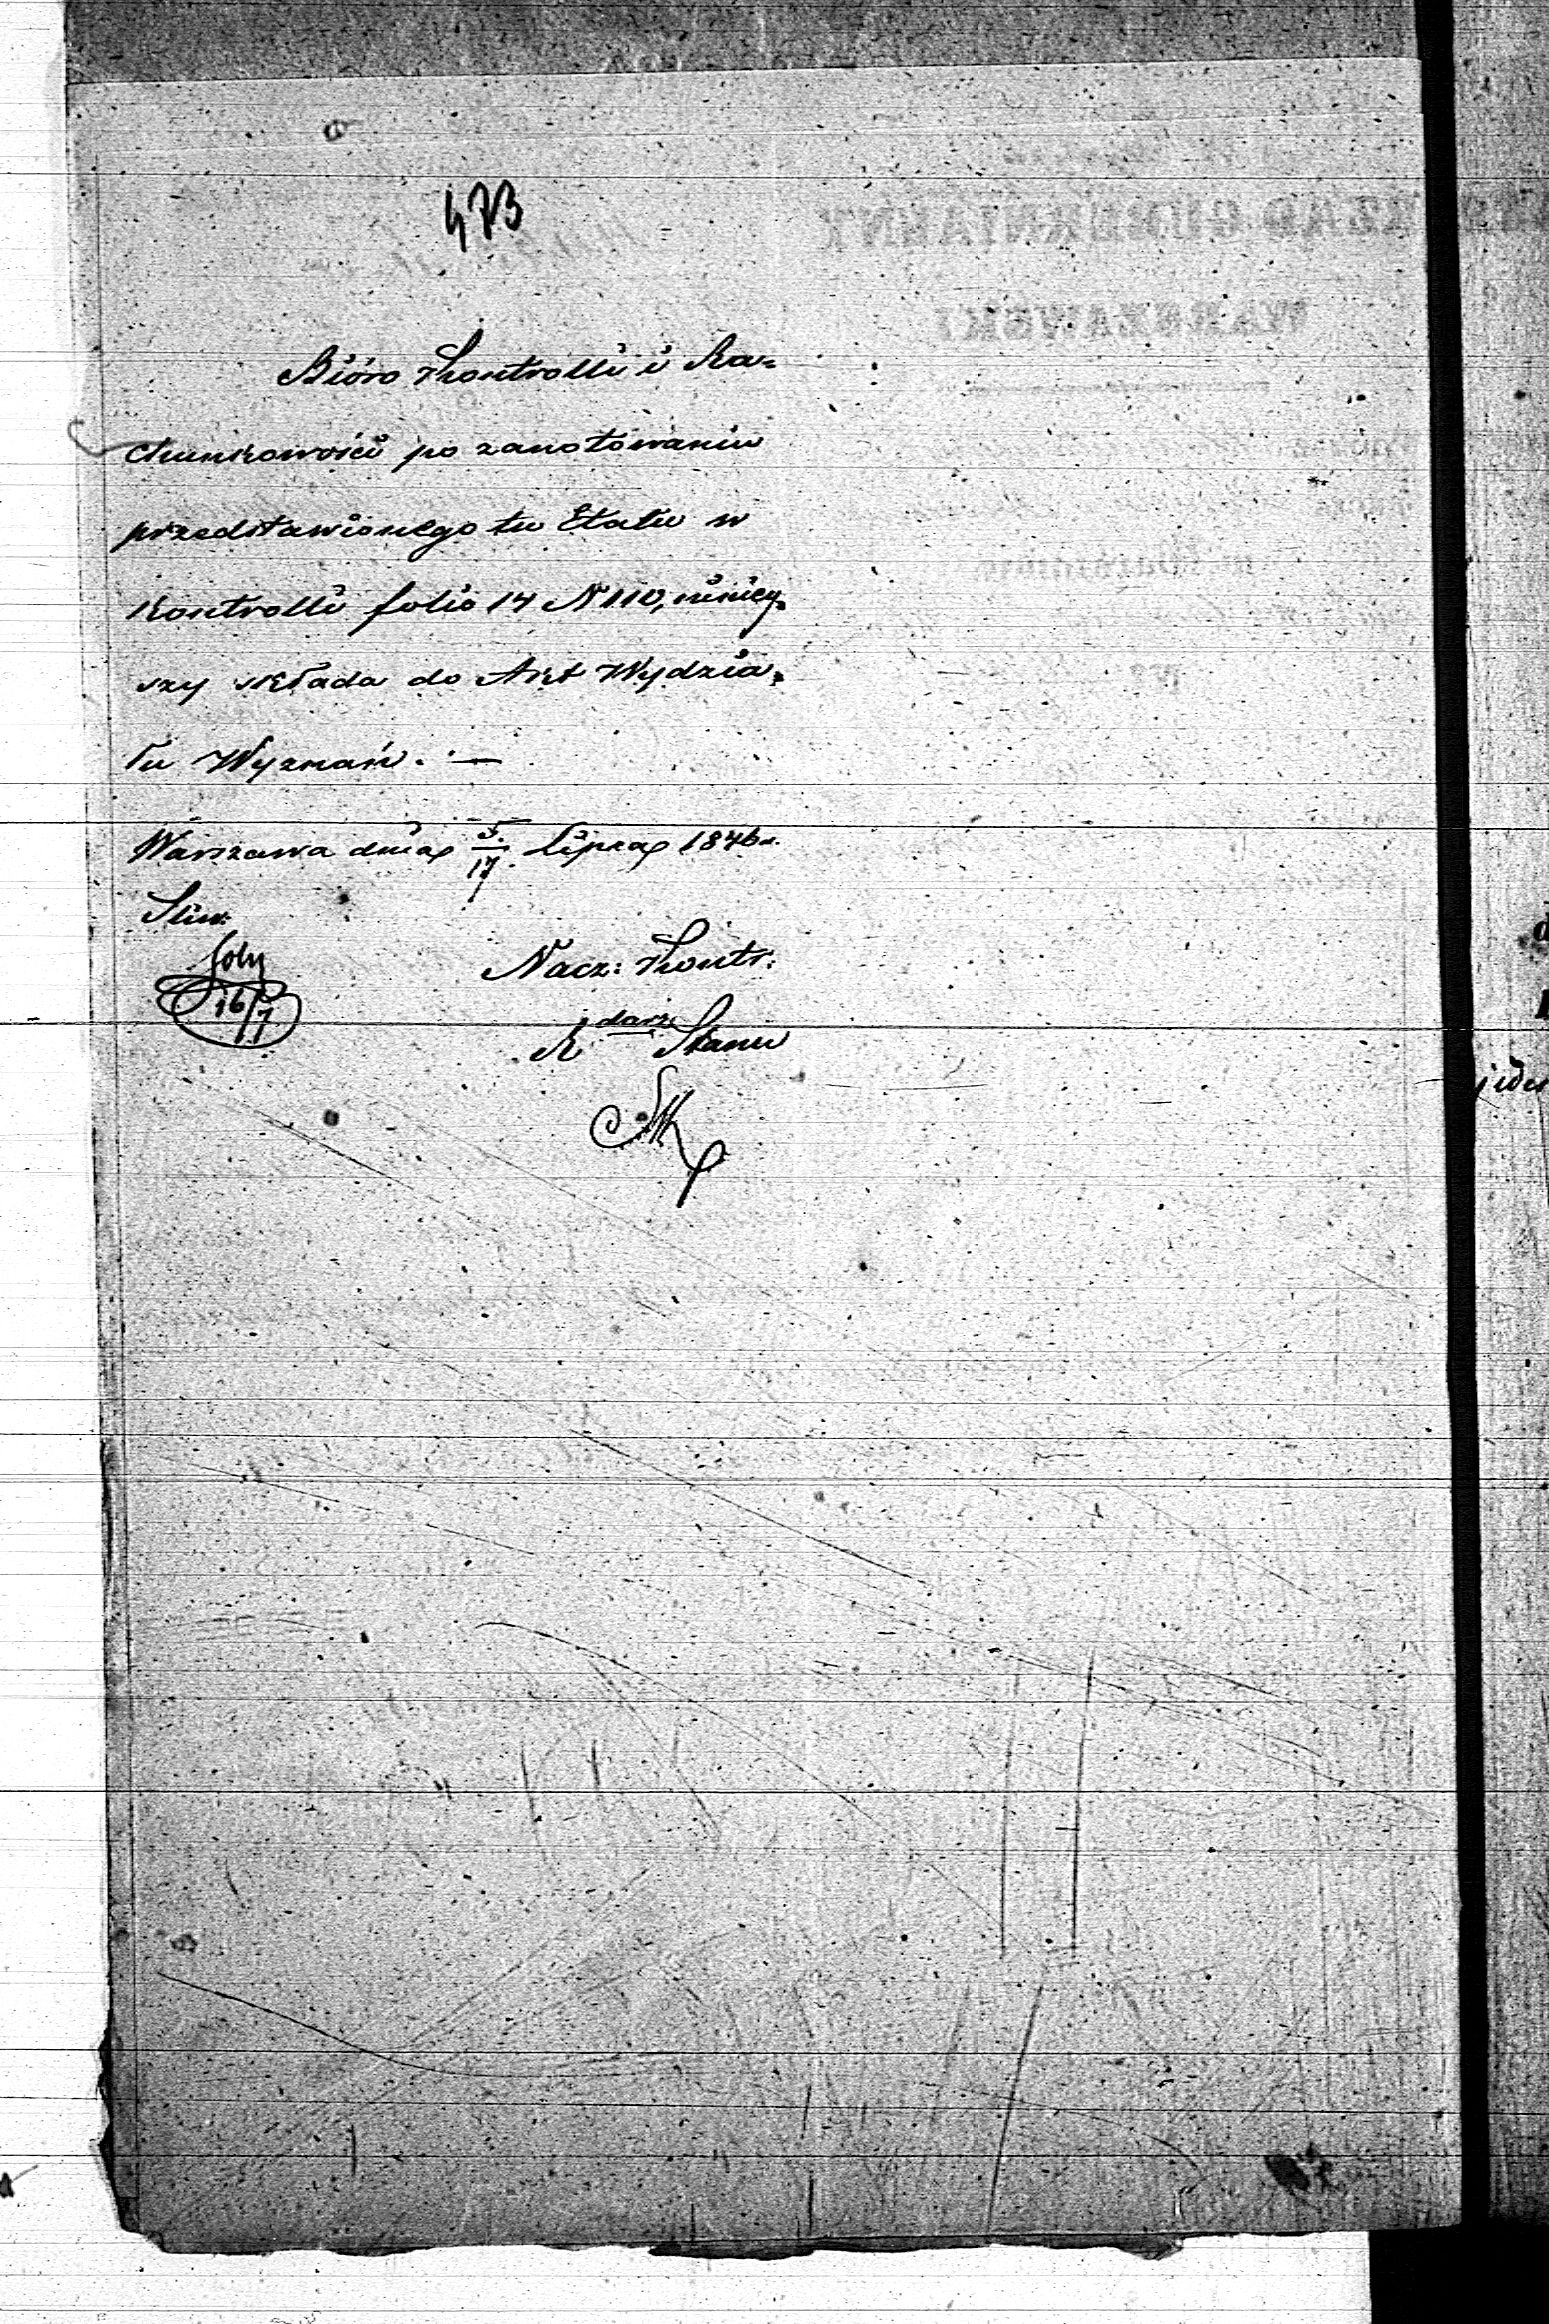 473
Bióro Kontrolli i Ra=
chunkowości po zanotowaniu
przedstawionego tu Etatu w
Kontrolli folio 14 N 110, niniey=
szy składa do Akt Wydzia=
łu Wyznań. —
Warszawa dnia 5/17 Lipca 1846 r.
Nacz: Kontr:
R darz Stanu
16/7